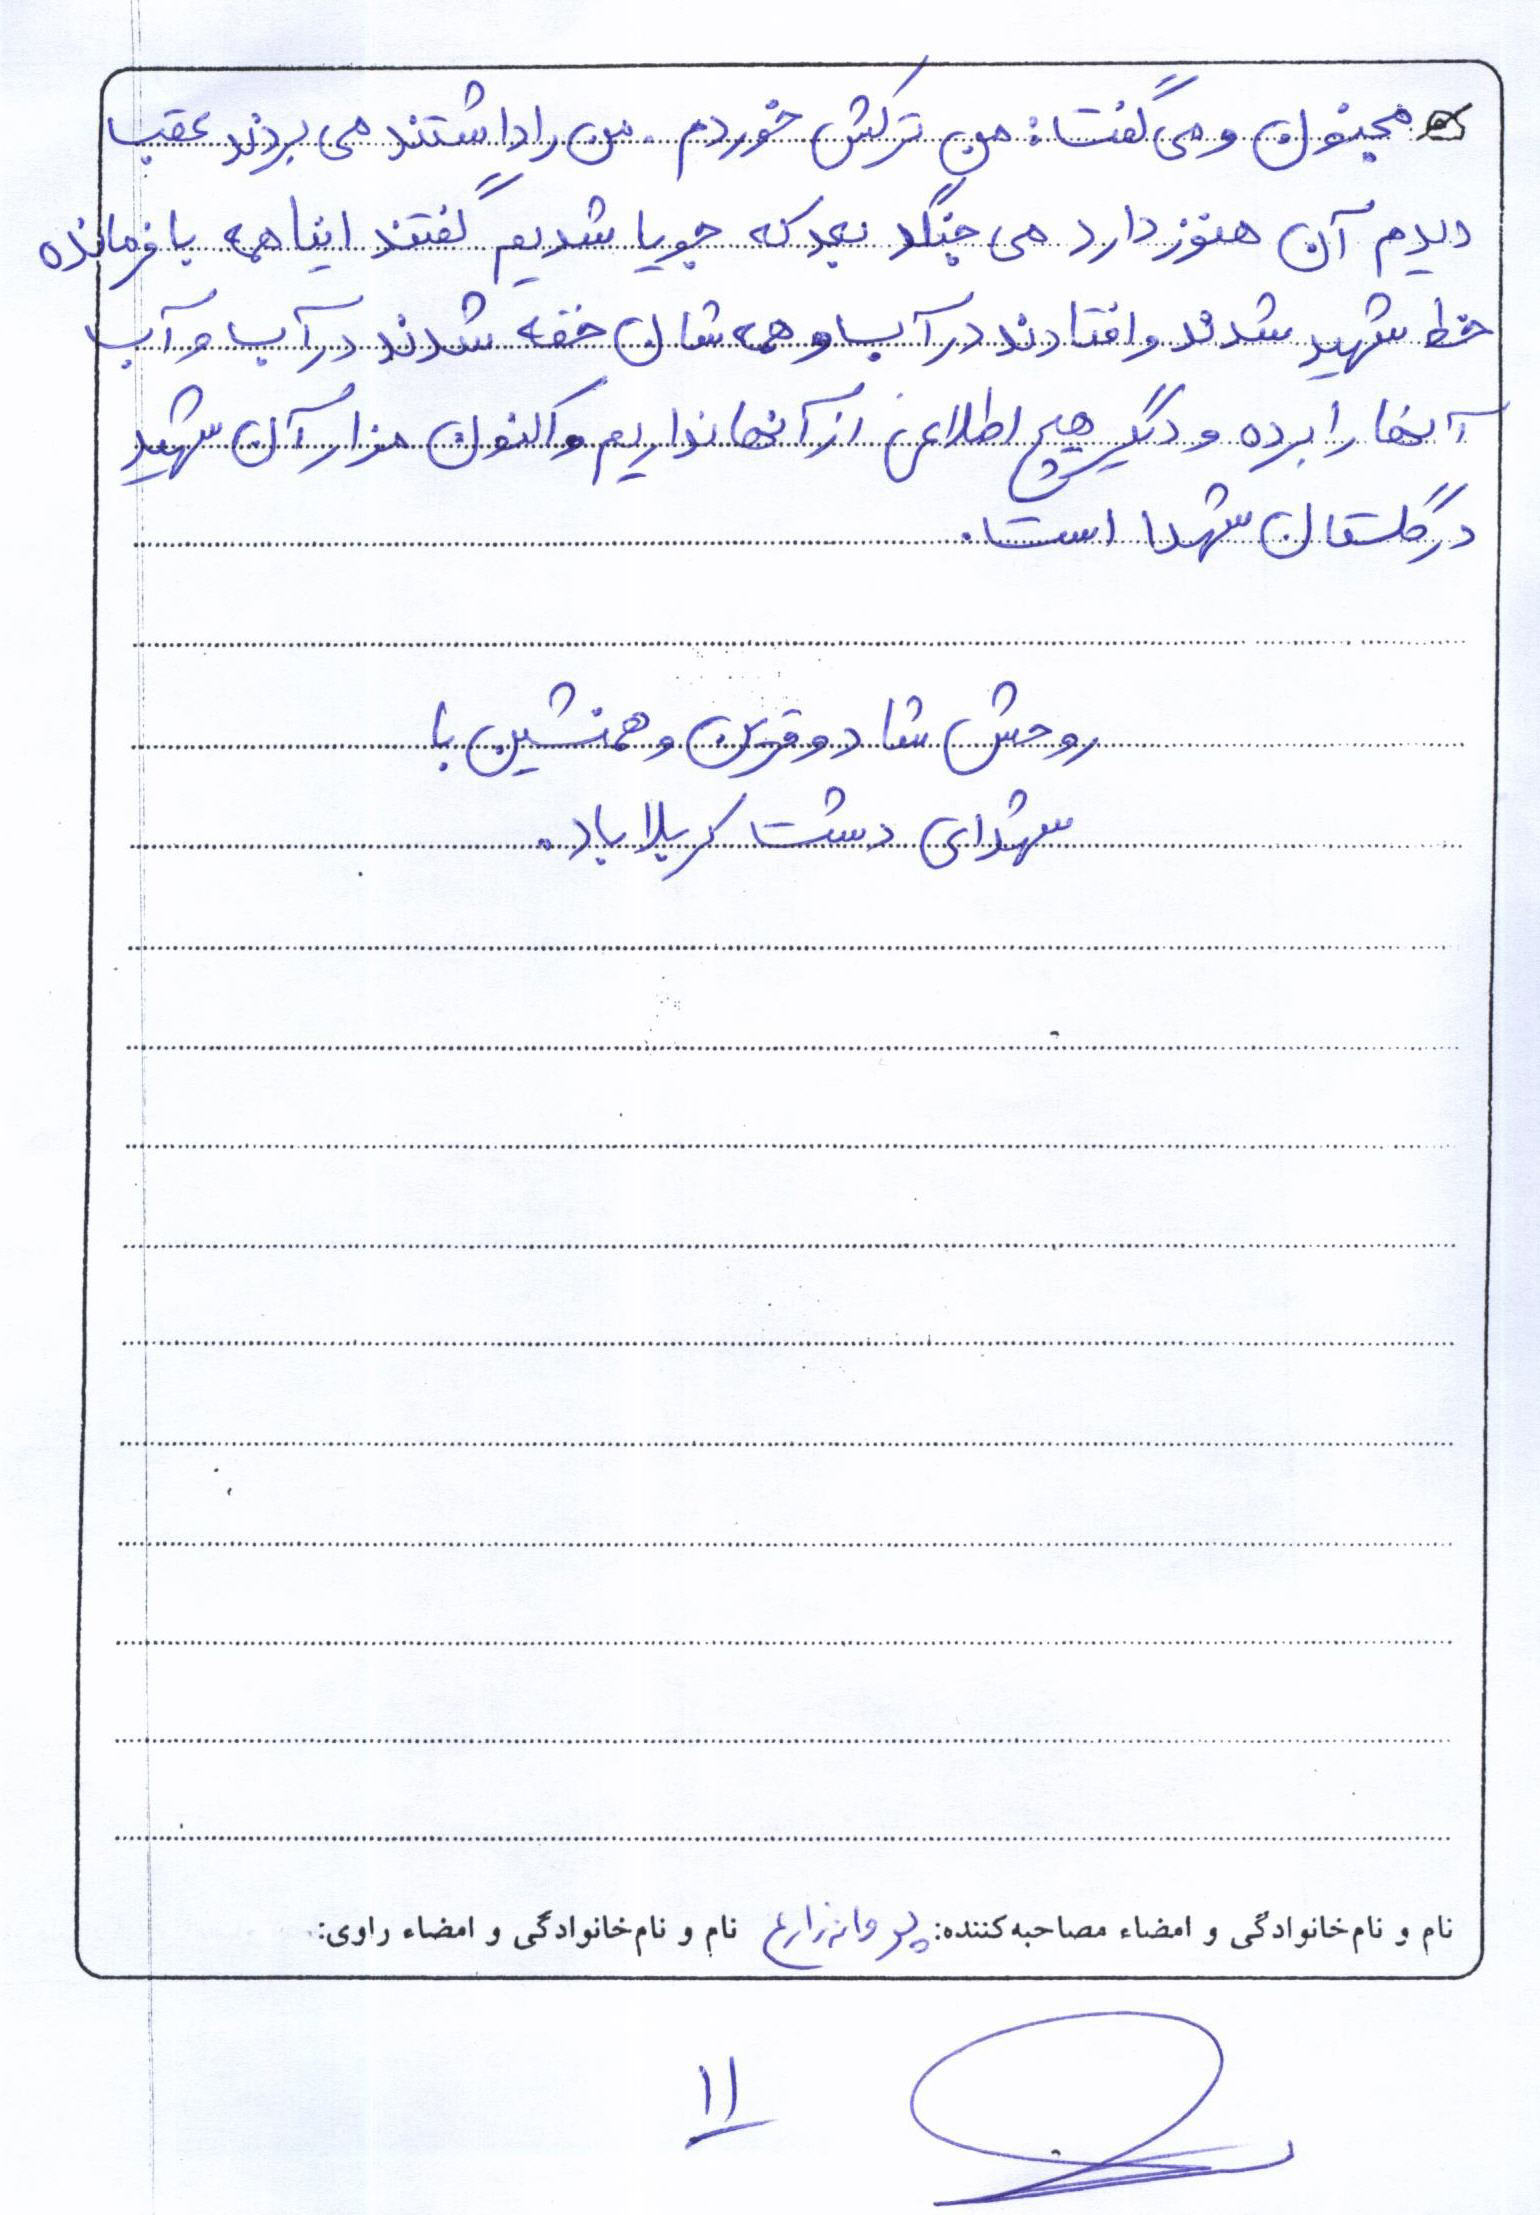 مجنون و می گفت: من ترکش خوردم. من را داشتند می بردند عقب
دیدم آن هنوز دارد می جنگد بعد که جویا شدیم گفتند اینا همه با فرمانده
خط شهید شدند و افتادند در آب و همه شان خفه شدند در آب و آب
آنها را برده و دیگر هیچ اطلاعی از آنها نداریم و اکنون مزار آن شهید
در گلستان شهدا است.
روحش شاد و قرین و همنشین با
شهدای دشت کربلا باد.
نام و نام‌خانوادگی و امضاء مصاحبه‌کننده: پروانه زارع نام و نام‌خانوادگی و امضاء راوی:
۱۱